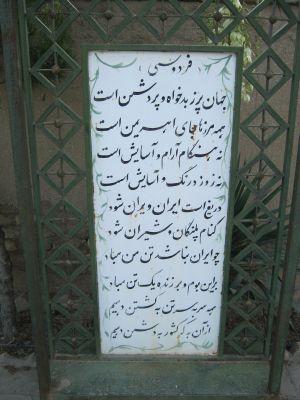 فردوسی
جهان پر ز بدخواه و پر دشمن است
همه مرزها جای اهریمن است
نه هنگام آرام و آسایش است
نه روز درنگ و آسایش است
دریغ است ایران ویران شود
کنام پلنگان و شیران شود
چو ایران نباشد تن من مباد
براین بوم و بر زنده یک تن مباد
همه سر به سر تن به کشتن دهیم
از آن به که کشور به دشمن دهیم